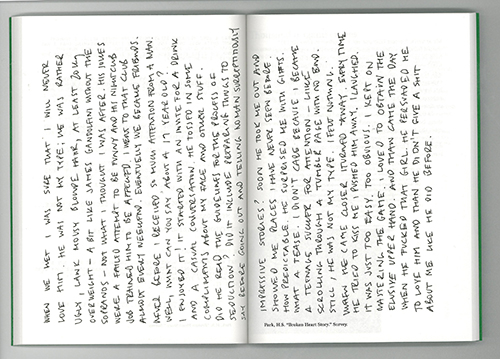 WHEN WE MET I WAS SURE THAT I WILL NEVER
LOVE HIM. HE WAS NOT MY TYPE; HE WAS RATHER
UGLY, LANK MOUSY BLONDE HAIR, AT LEAST 20 KG
OVERWEIGHT – A BIT LIKE JAMES GANDOLFINI WITHOUT THE
SOPRANOS – NOT WHAT I THOUGHT I WAS AFTER. HIS JOKES
WERE A FAILED ATTEMPT TO BE FUNNY AND HIS NIGHTCLUB
JOB TRAINED HIM TO BE AFFECTED. I WENT TO THAT CLUB
ALMOST EVERY WEEKEND. EVENTUALLY WE BECAME FRIENDS.
NEVER BEFORE I RECEIVED SO MUCH ATTENTION FROM A MAN.
WELL, WHAT CAN YOU SAY ABOUT A 17 YEAR OLD?
I ENJOYED IT. IT STARTED WITH AN INVITE FOR A DRINK
AND A CASUAL CONVERSATION. HE TOSSED IN SOME
COMPLIMENTS ABOUT MY FACE AND OTHER STUFF.
DID HE READ THE GUIDELINES FOR THE PROCESS OF
SEDUCTION? DID IT INCLUDE PREPARING THINGS TO
SAY BEFORE GOING OUT AND TELLING WOMAN SURREPTITIOUSLY
IMPRESSIVE STORIES? SOON HE TOOK ME OUT AND
SHOWED ME PLACES I HAVE NEVER SEEN BEFORE.
HOW PREDICTABLE. HE SURPRISED ME WITH GIFTS.
WHAT A TEASE. I DIDN'T CARE BECAUSE I BECAME
A TEENAGE SUCKER FOR ATTENTION LIKE
SCROLLING THROUGH A TUMBLR PAGE WITH NO END.
STILL, HE WAS NOT MY TYPE. I FELT NORMAL.
WHEN HE CAME CLOSER I TURNED AWAY. EVERY TIME
HE TRIED TO KISS ME I PUSHED HIM AWAY. I LAUGHED.
IT WAS JUST TOO EASY, TOO OBVIOUS. I KEPT ON
MASTERING THE GAME. I LOVED TO OBTAIN THE
ELUSIVE UPPER HAND AND THAN CAME THE DAY
WHEN HE FUCKED THAT GIRL. HE PERSUADED ME
TO LOVE HIM AND THAN HE DIDN'T GIVE A SHIT
ABOUT ME LIKE ME DID BEFORE.
Park, H.S. "Broken Heart Story." Survey.